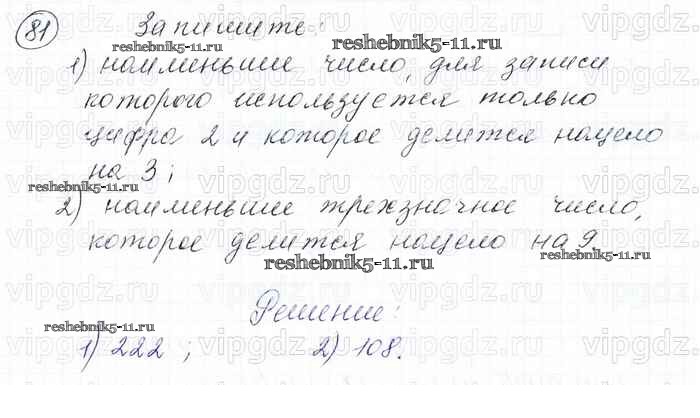 81 Запишите:
reshebnik5-11.ru reshebnik5-11.ru
1) наименьшие число, для записи
которого используется только
цифра 2 и которое делится нацело
на 3;
reshebnik5-11.ru
2) наименьшие трехзначное число,
которое делится нацело на 9.
reshebnik5-11.ru reshebnik5-11.ru
Решение:
reshebnik5-11.ru
1) 222 ; 2) 108.
vipgdz.ru